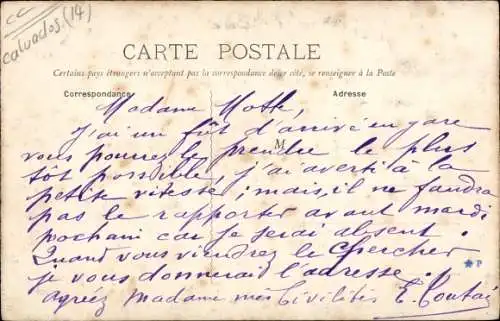 cc
Calvados. (14)
CARTE POSTALE
Certains pays étrangers n'acceptant pas la correspondance de ce côté, se renseigner à la Poste
Correspondance
Adresse
M
Madame Motte,
J'ai un fût d'arrivé en gare
vous pourrez le prendre le plus
tôt possible, j'ai averti à la
petite vitesse; mais, il ne faudra
pas le rapporter avant mardi
pochain car je serai absent.
Quand vous viendrez le chercher
je vous donnerai l'adresse.
Agréez Madame mes Civilités E.
P